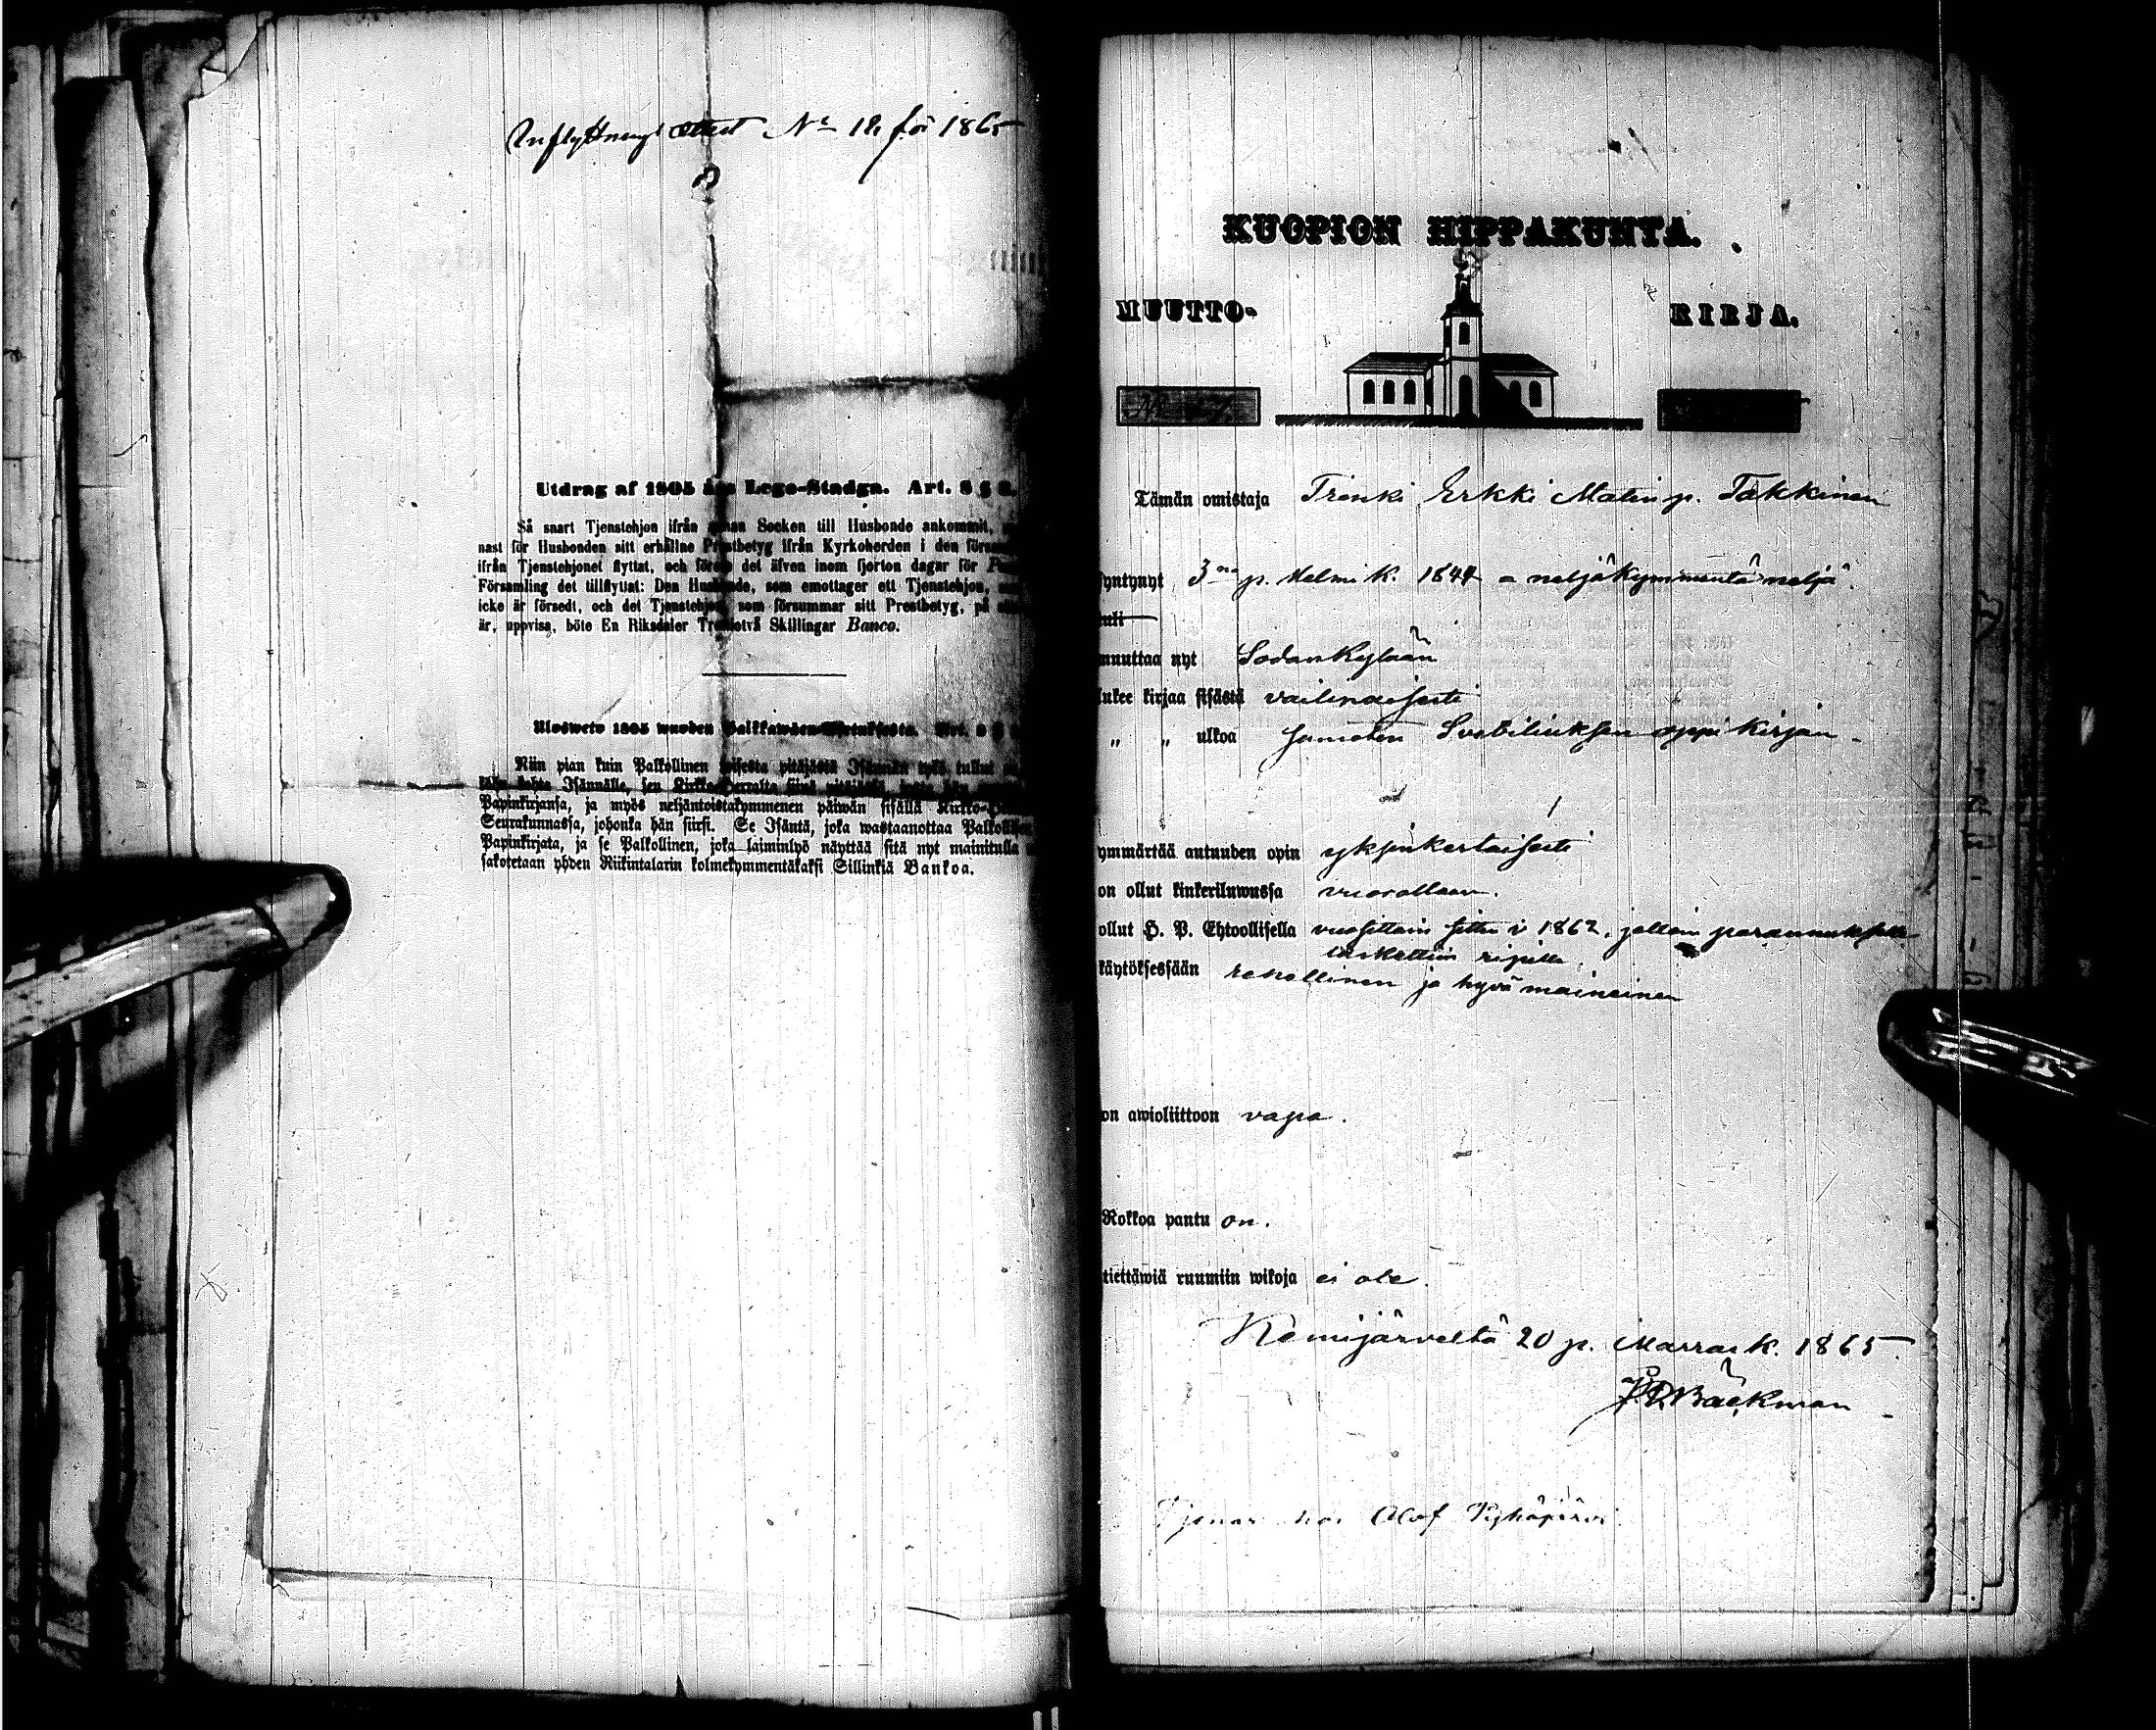 Inflyttnings attest No 18, för 1865
Utdrag af 1805 års Lego-Stadga. Art. 8 §
Så snart Tjenstehjon ifrån annan Socken till Husbonde ankommit,
nast för Husbonden sitt erhållne Prestbetyg ifrån Kyrkoherden i den
ifrån Tjenstehjonet flyttat, och det äfven inom fjorton dagar för
Församling det tillflyttat: Den Husbonde, som emottager ett Tjenstehjon,
icke är försedt, och det Tjenstehjon som försummar sitt Prestbetyg, på
är, uppvisa, böte En Riksdaler Trettiotvå Skillingar Banco.
Ulosweto 1805 wuoden Palkkawäen Art.
Niin pian kuin Palkollinen toisesta pitäjästä Isännän tykö tullut
Isännälle, sen
Papinkirjansa, ja myös neljäntoistakymmenen päiwän sisällä
Seurakunnassa, johonka hän siirsi. Se Isäntä, joka wastaanottaa
Papinkirjata, ja se Palkollinen, joka laiminlyö näyttää sitä nyt mainitulla
sakotetaan yhden Riikintalarin kolmekymmentäkaksi Sillinkiä Bankoa.
KUOPION HIPPAKUNTA.
MUUTTO- KIRJA.
Tämän omistaja Trenki Erkki Matinp. Takkinen
syntynyt 3na p. Helmik. 1844 neljäkymmentä neljä
tuli
muuttaa nyt Sodankylään
lukee kirjaa sisästä vailinaisesti
" " ulkoa samaten Svebiliuksen oppi kirjan
ymmärtää autuuden opin yksinkertaisesti
on ollut kinkeriluwussa vuorollaan.
ollut H. P. Ehtoollisella vuosittain sitte v 1862, jolloin
laskettiin ripille.
käytöksessään rehellinen ja hyvä maineinen
on awioliittoon vapa.
Rokkoa pantu on.
tiettäwiä ruumiin wikoja ei ole.
Kemijärveltä 20 p. Marrask. 1865.
Bäckman
Tjenar hos Olof Pyhäjärvi.